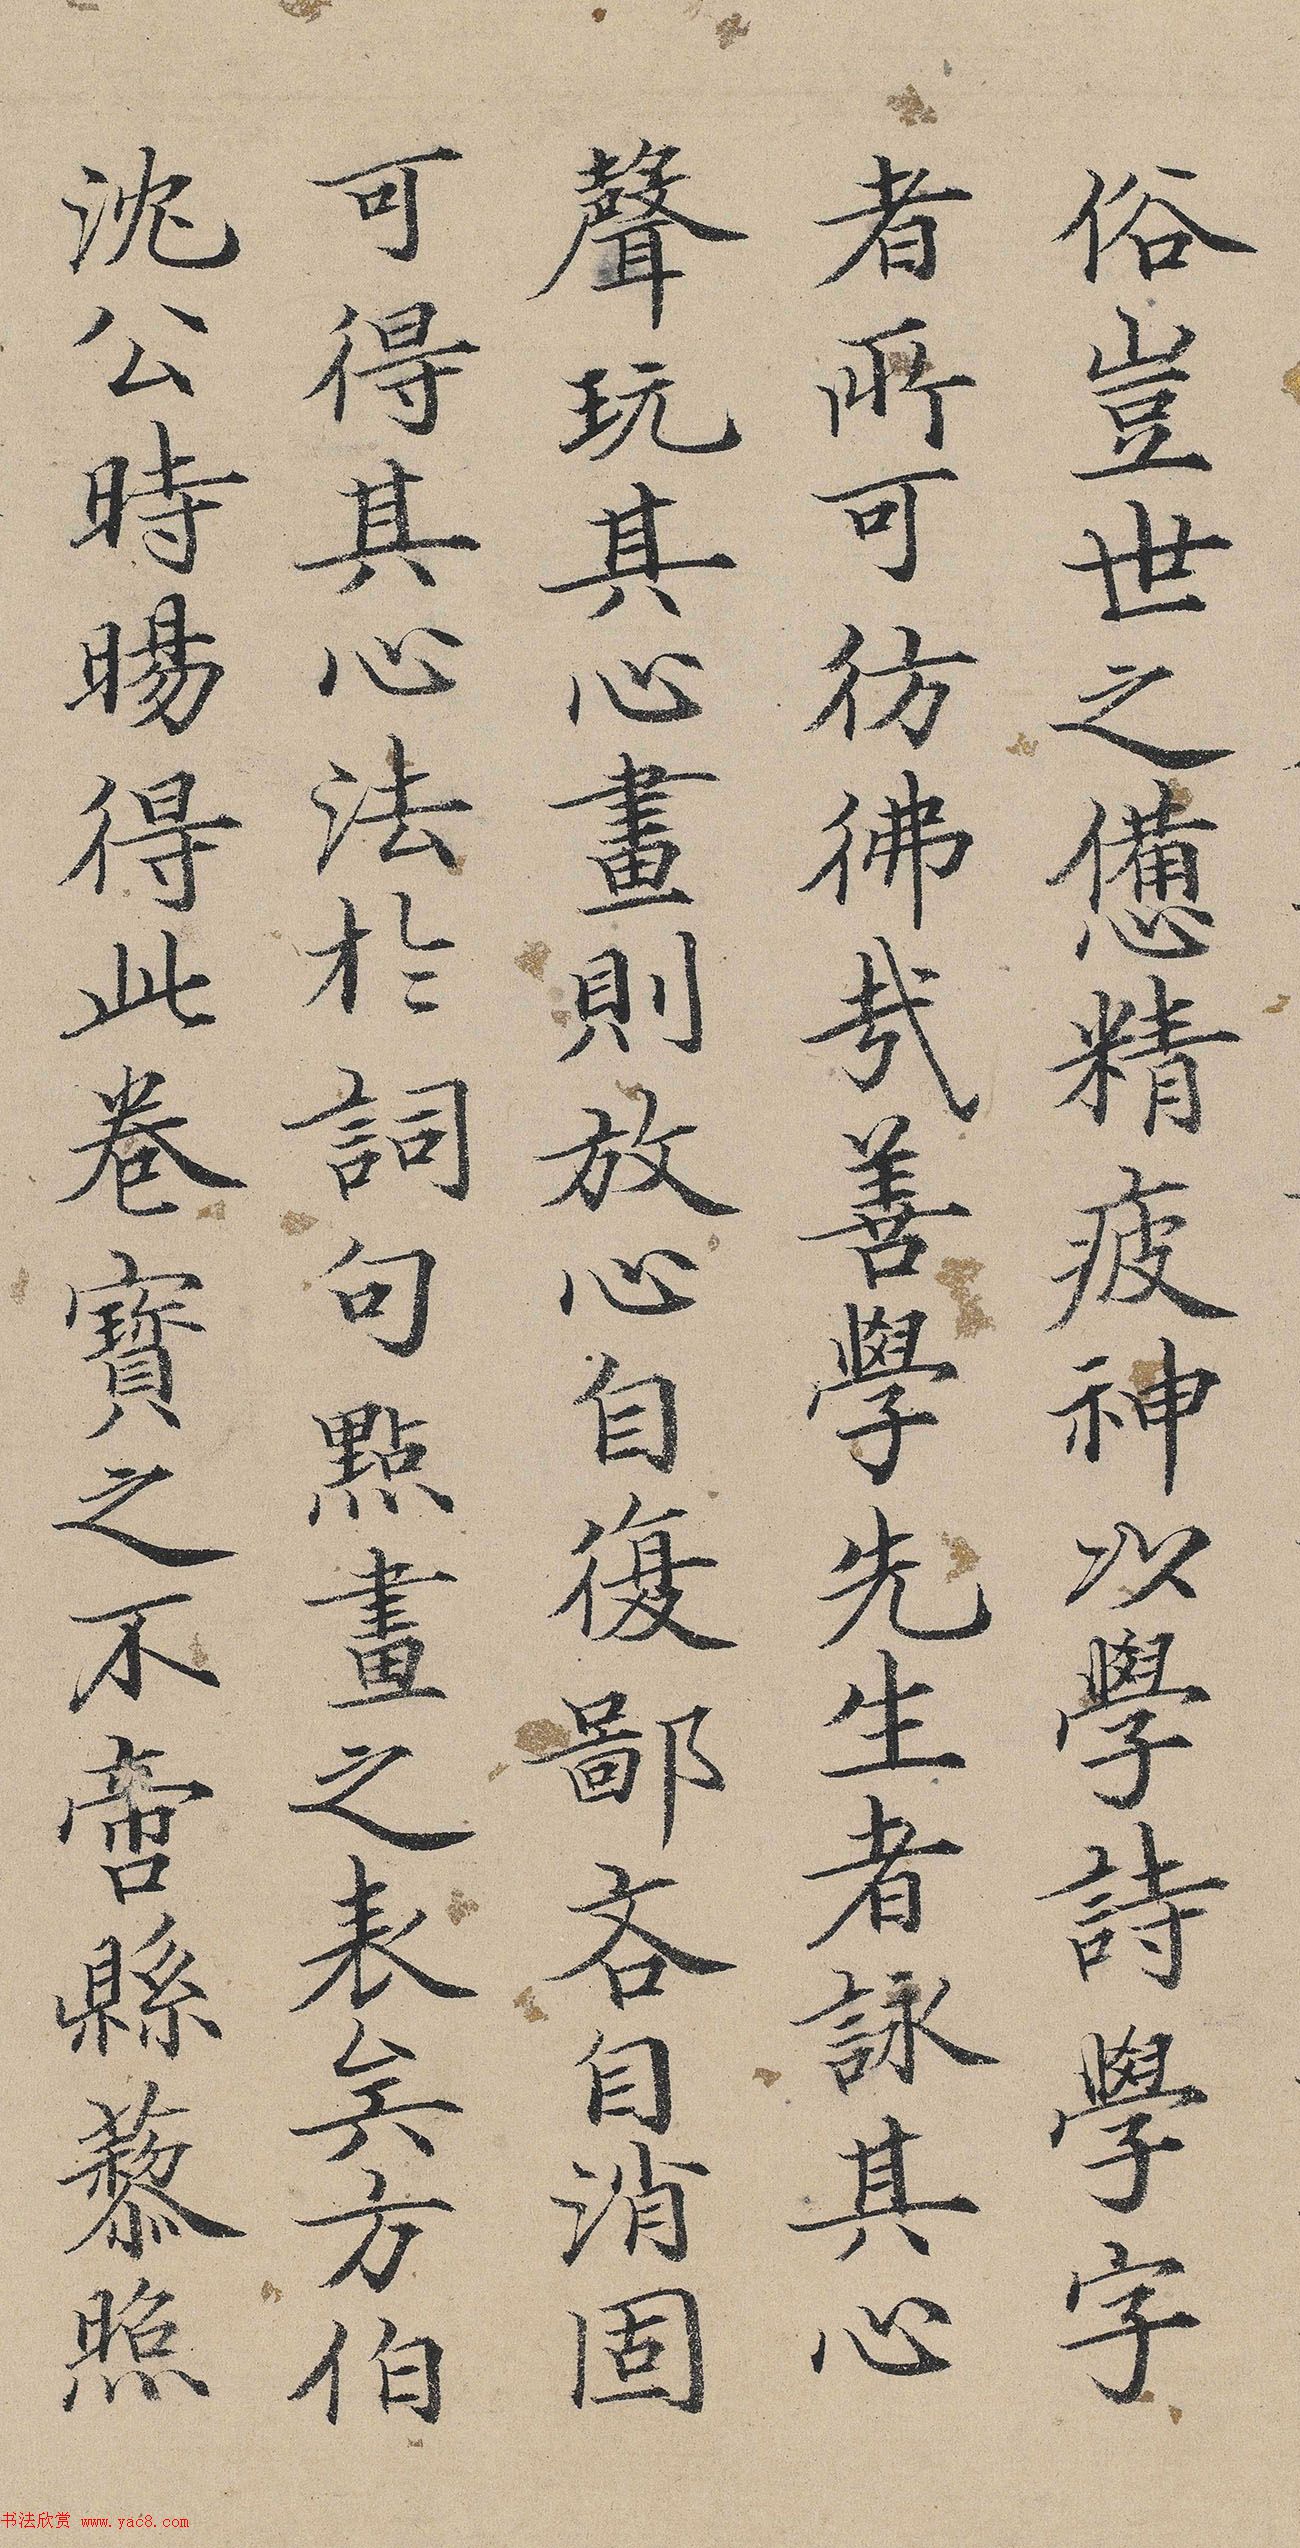 俗豈世之憊精疲神以學詩學字
者所可彷彿哉善學先生者詠其心
聲玩其心畫則放心自復鄙吝自消固
可得其心法於詞句點畫之表矣方伯
沈公時暘得此卷寶之不啻縣藜照
书法欣赏 www.yac8.com